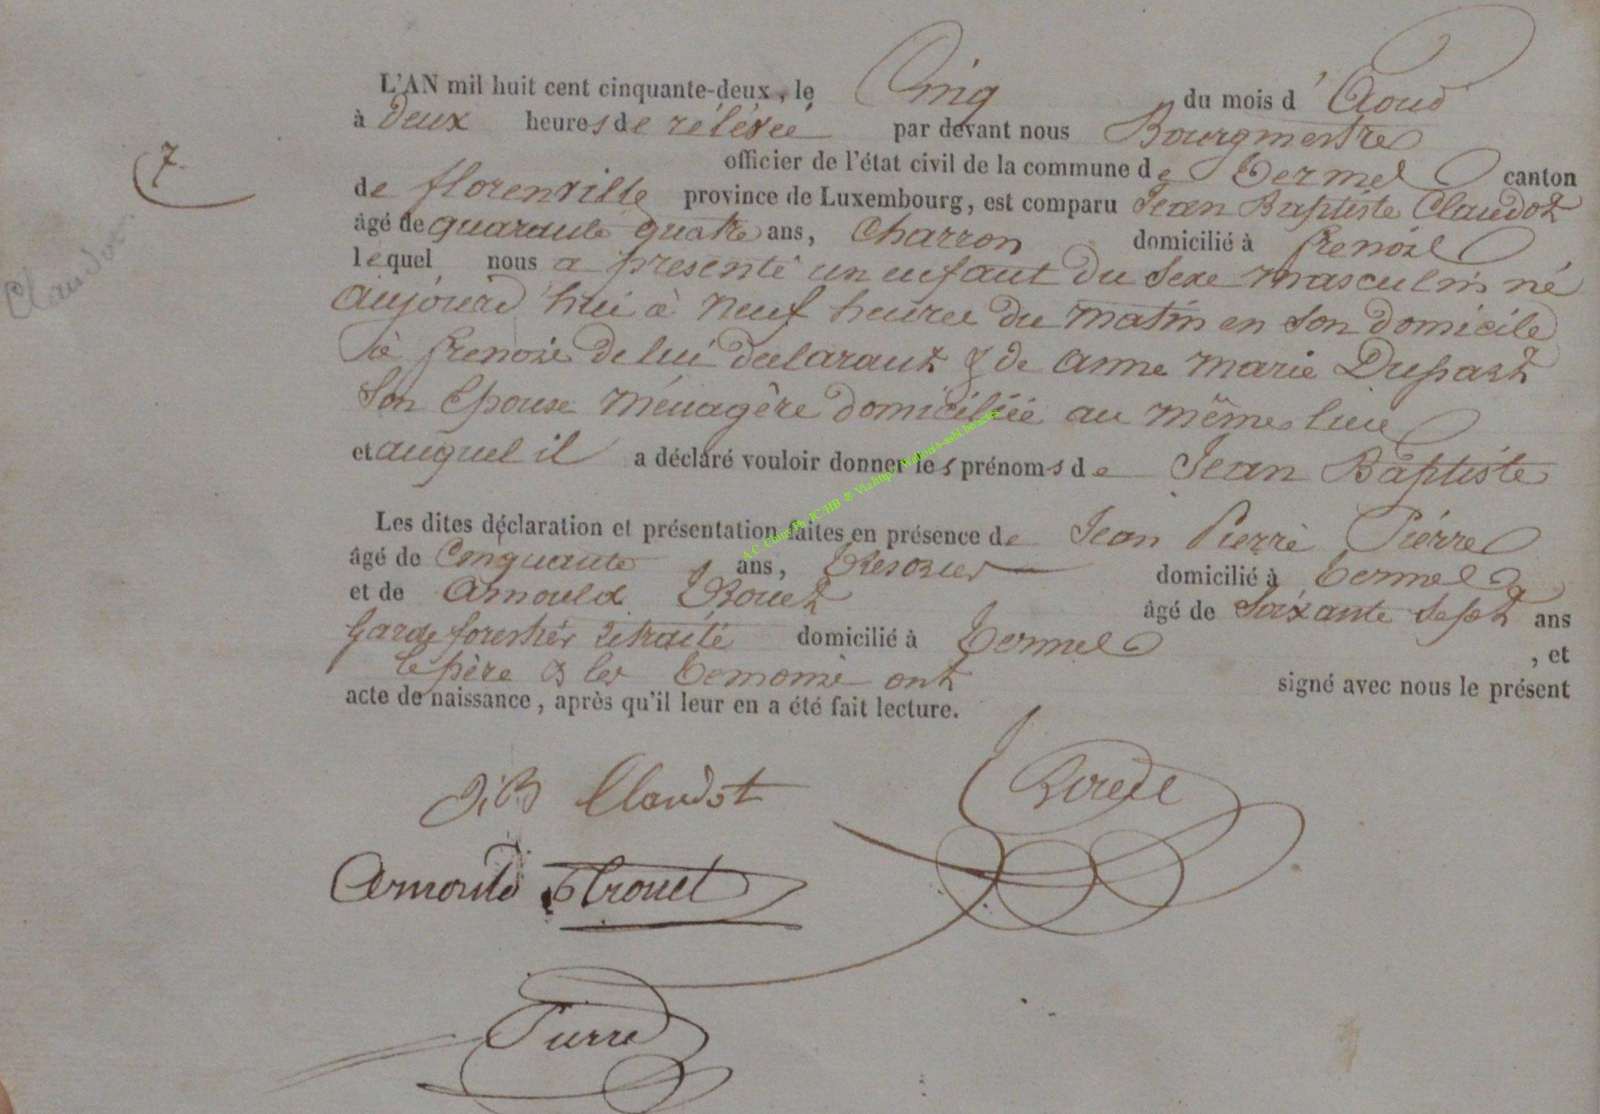 L'AN mil huit cent cinquante-deux, le Cinq du mois d'Aoud
à Deux heures de rélévée par devant nous Bourgmestre
7
officier de l'état civil de la commune de Termel canton
de florenville province de Luxembourg, est comparu Jean Baptiste Claudot
âgé de quarante quatre ans, Charron domicilié à frenois
Claudot
lequel nous a présenté un enfant du Sexe masculin né
aujourd'hui à neuf heures du matin en Son domicile
à frenois de lui déclarant & de anne marie Dupart
Son Epouse Ménagère domiciliée au même lieu
et auquel il a déclaré vouloir donner les prénoms de Jean Baptiste
Les dites déclaration et présentation faites en présence de Jean Pierre Piérre
âgé de Cinquante ans, domicilié à termel
et de Arnould Trouet âgé de Soixante Sept ans
Garde forestier retraité domicilié à termel , et
le père & les temoins ont signé avec nous le présent
acte de naissance, après qu'il leur en a été fait lecture.
J.B Claudot
Arnould Trouet
Pierre